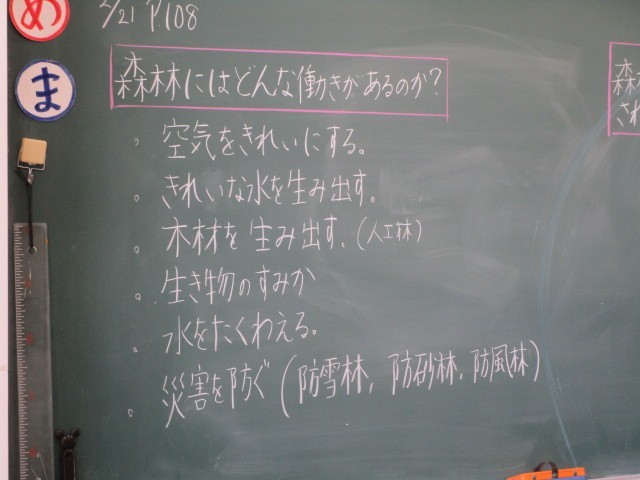 め
2/21 P.108
ま
森林にはどんな働きがあるのか?
。空気をきれいにする。
。きれいな水を生み出す。
。木材を生み出す。(人工林)
。生き物のすみか
。水をたくわえる。
。災害を防ぐ(防雪林,防砂林,防風林)
森
され